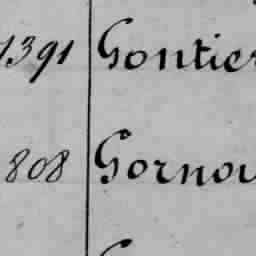 1391 Gontier
808 Gornou